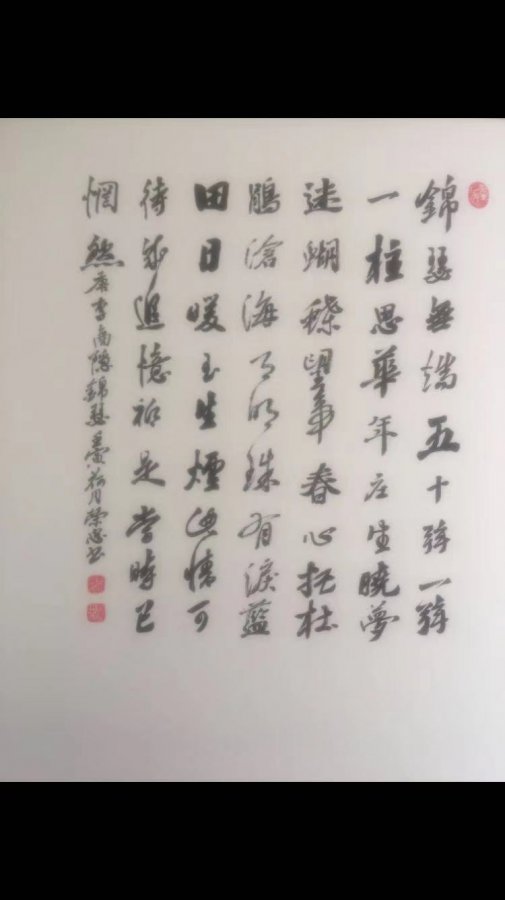 錦瑟無端五十弦一弦
一柱思華年庄生曉夢
迷蝴蝶望帝春心托杜
鵑滄海月明珠有淚藍
田日暖玉生煙此情可
待成追憶祇是當時已
惘然 唐李商隱錦瑟 月 书